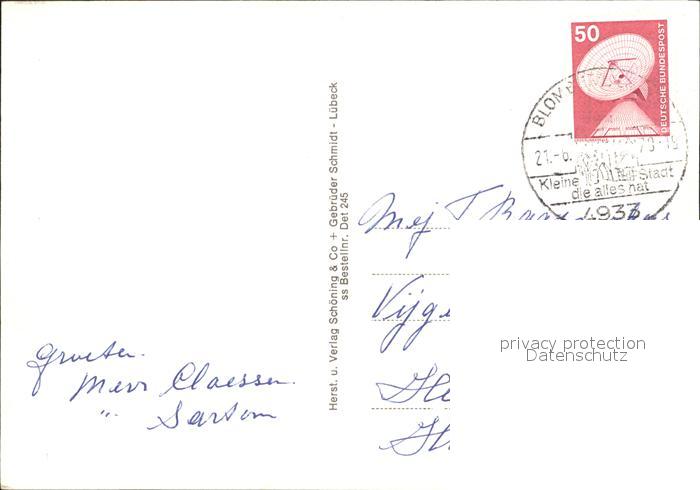 50
DEUTSCHE BUNDESPOST
BLOM
21.-6.
Kleine Stadt
die alles hat
4933
Herst. u. Verlag Schöning & Co + Gebrüder Schmidt - Lübeck
ss Bestellnr. Det 245
Mej T
Vijg
privacy protection
Datenschutz
Groeten.
Mevr Claessen.
" Sartom